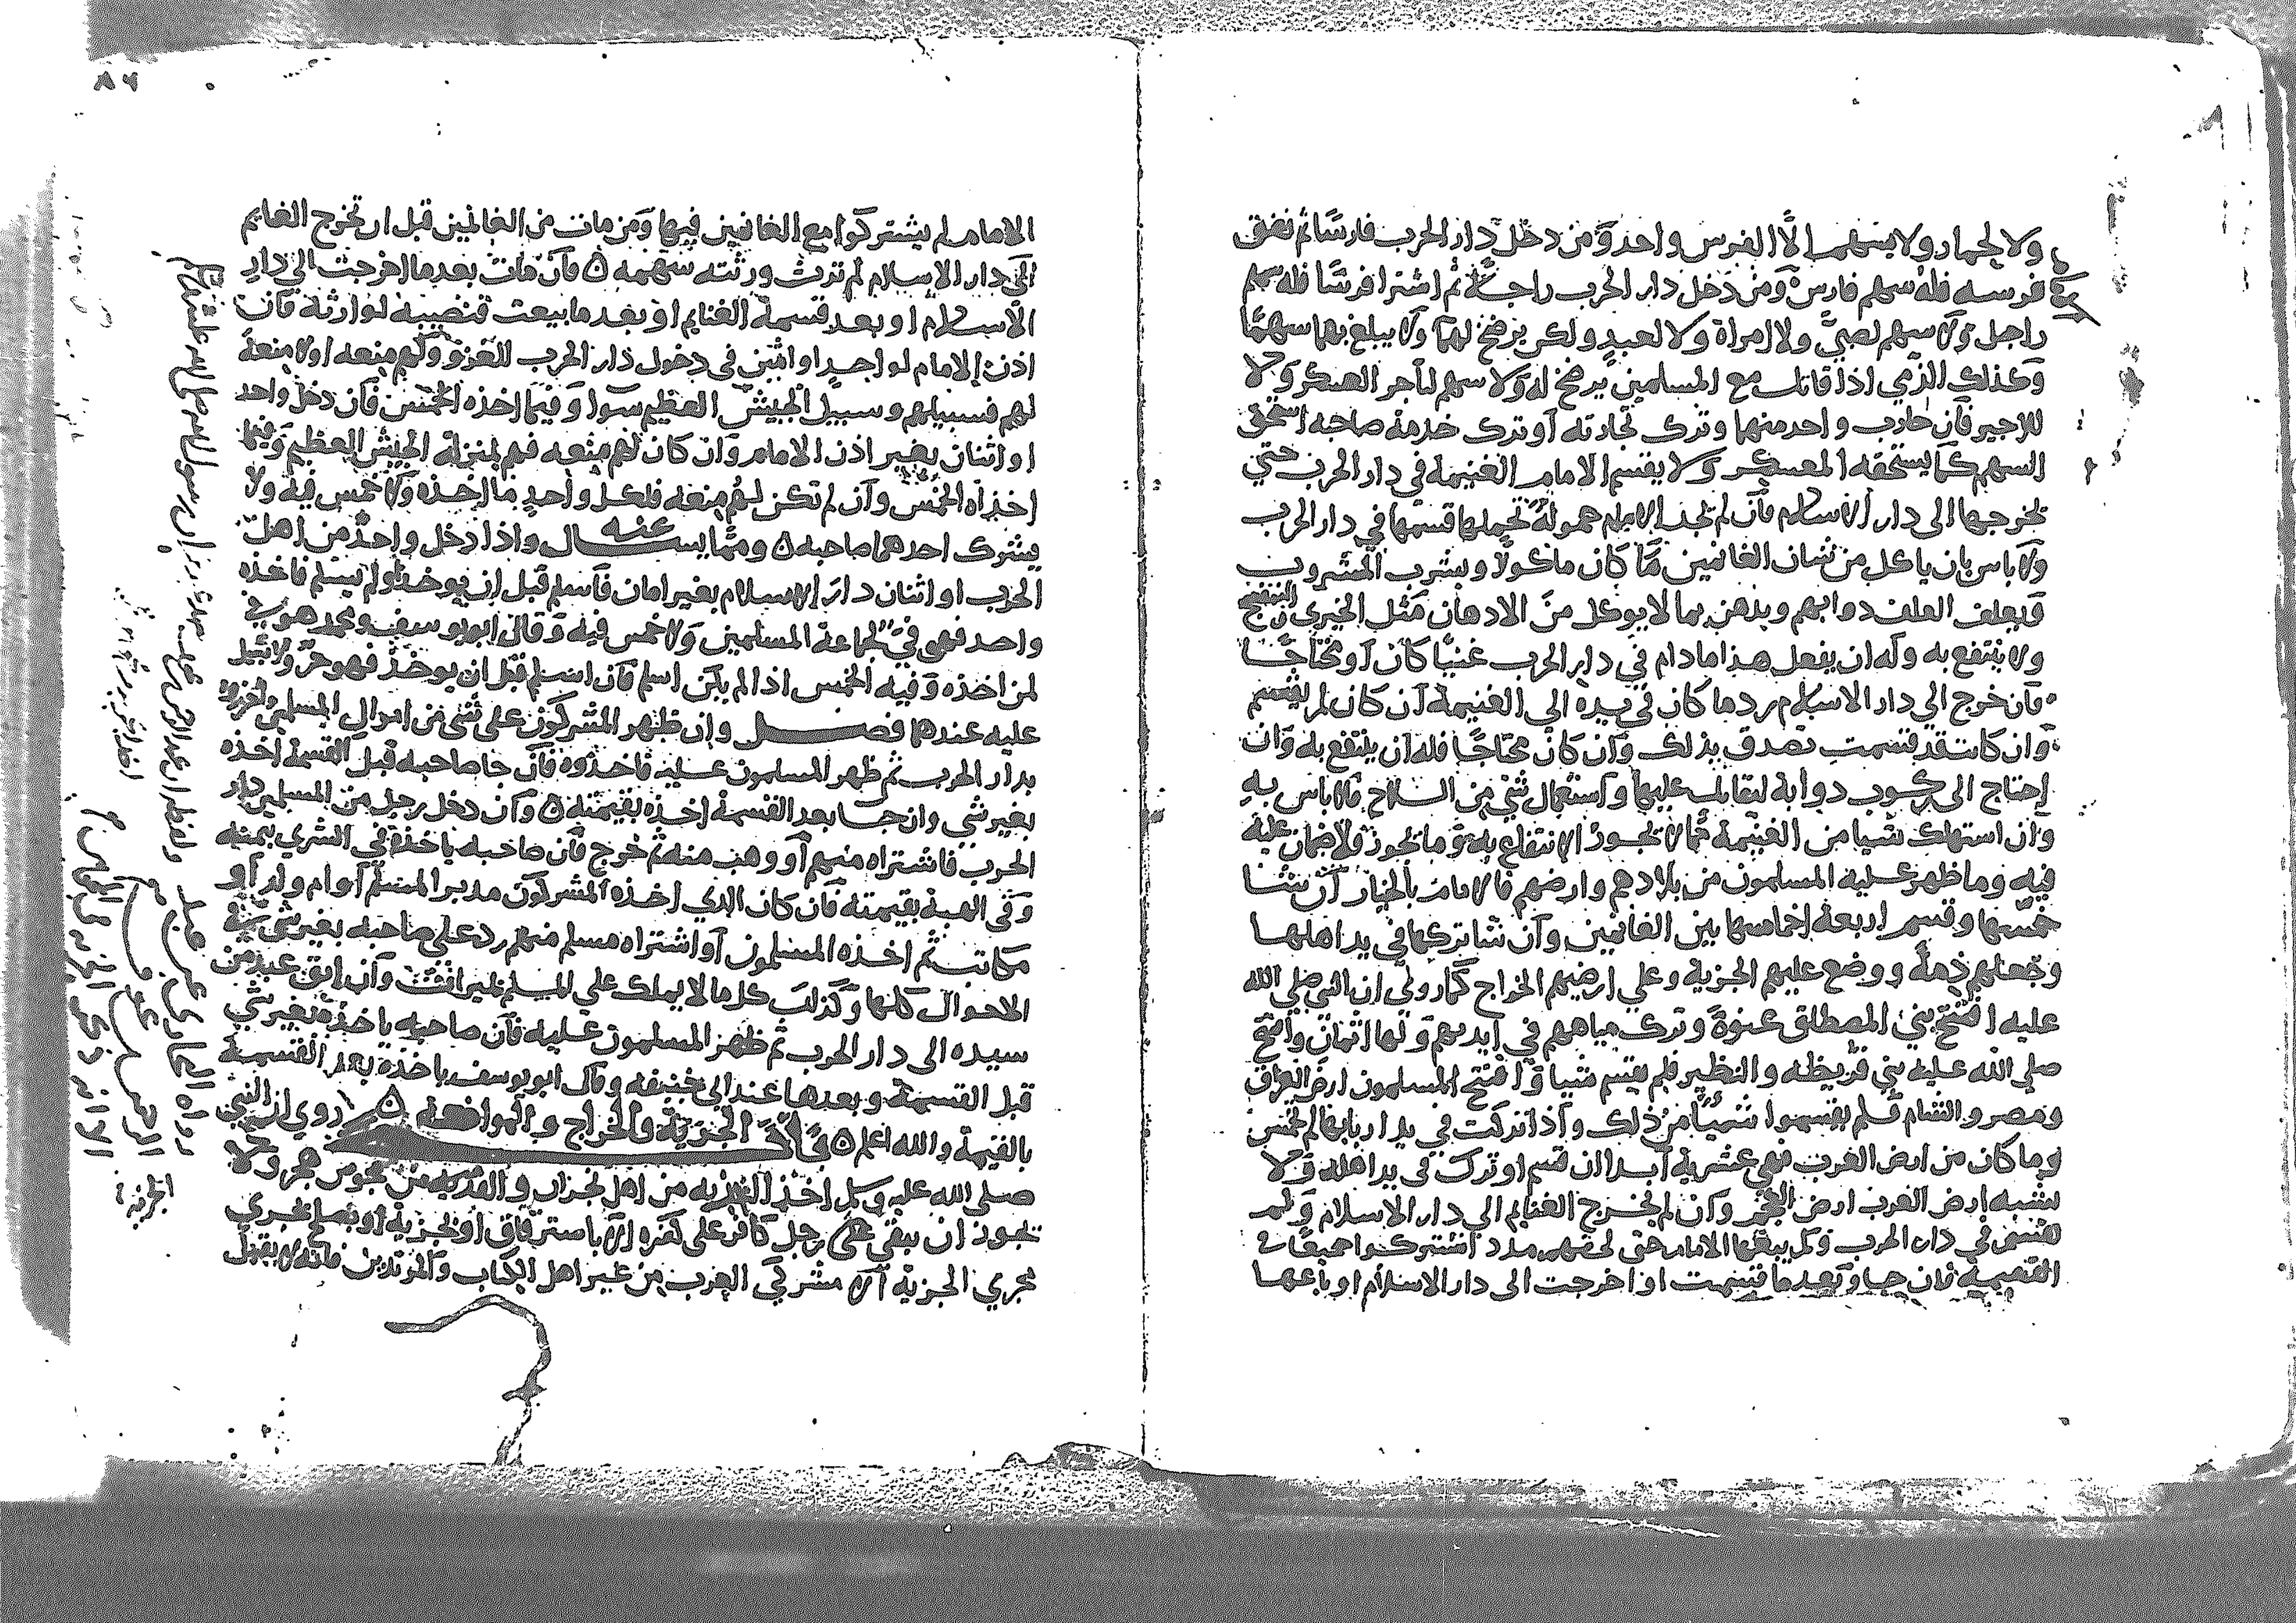 ولا لحمار ولا يسهم الا لفرس واحد ومن دخل دار الحرب فارسًا ثم نفق
فرسه فله سهم فارس ومن دخل دار الحرب راجلا ثم اشترا فرسًا فله سهم
راجل ولا سهم لصبي ولا لامراة ولا لعبد ولكن يرضخ لهما ولا يبلغ بهما سهمًا
وكذلك الذمي اذا قاتل مع المسلمين يرضخ له ولا سهم لتاجر العسكر ولا
للاجير فان حارب واحد منهما وترك تجارته او ترك خدمة صاحبه استحق
السهم كما يستحقه المعسكر ولا يقسم الامام الغنيمة في دار الحرب حتي
يخرجها الى دار الاسلام فان لم يجد الامام حمولة تحملها قسمها في دار الحرب
ولا باس بان ياكل من شان الغانمين مما كان ماكولا ويشرب المشروب
ويعلف العلف دوابهم ويدهن بما لا يوكل من الادهان مثل الخيري
ولا ينتفع به وله ان يفعل هذا ما دام في دار الحرب غنيًا كان او محتاجًا
فان خرج الي دار الاسلام رد ما كان في يده الى الغنيمة ان كان لم يقسم
وان كانت قد قسمت تصدق بذلك وان كان محتاجًا فله ان ينتفع به وان
احتاج الى ركوب دوابه ليقاتل عليها واستعمال شي من السلاح فلا باس به
وان استهلك شيا من الغنيمة مما لا يجوز الانتفاع به وما يجوز فلا ضمان عليه
فيه وما ظهر عليه المسلمون من بلادهم وارضهم فالامام بالخيار ان شا
خمسها وقسم اربعة اخماسها بين الغانمين وان شا تركها في يد اهلها
وجعلهم ذمة ووضع عليهم الجزية وعلي ارضهم الخراج كما روي ان النبي صلي الله
عليه افتتح بني المصطلق عنوة وترك مياههم في ايديهم وافتتح
صلي الله عليه بني قريظه والنظير فلم يقسم شيا وافتتح المسلمون ارض العراق
ومصر والشام فلم يقسموا شيًا من ذلك واذا تركت في يد اربابها لم تخمس
وما كان من ارض العرب فهي عشرية ابدا ان قسم او ترك في يد اهله ولا
يشبه ارض العرب ارض العجم وان لم تخرج الغنايم الي دار الاسلام ولم
تقسم في دار الحرب ولم يبعها الامام حتى لحقهم مدد اشتركوا جميعًا في
الغنيمة فان جاو بعد ما قسمت او اخرجت الى دار الاسلام او باعها
٨٦
الامام لم يشتركوا مع الغانمين فيها ومن مات من الغانمين قبل ان تخرج الغنايم
الى دار الاسلام لم ترث ورثته سهمه ه فان مات بعد ما اخرجت الي دار
الاسلام او بعد قسمة الغنايم او بعد ما بيعت فنصيبه لوارثة فان
اذن الامام لواحد او اثنين في دخول دار الحرب للغزو ولهم منعه او لا منعة
لهم فسبيلهم وسبيل الجيش العظيم سوا وفيما اخذه الخمس فان دخل واحد
او اثنان بغير اذن الامام وان كان لهم منعه فهم بمنزلة الجيش العظيم وفيما
اخذاه الخمس وان لم تكن لهم منعه فلكل واحد ما اخذه ولا خمس فيه ولا
يشرك احدهما صاحبه ه ومما يسال عنه واذا دخل واحد من اهل
الحرب او اثنان دار الاسلام بغير امان فاسلم قبل ان يوخذ او لم يسلم فاخذه
واحد فهو في لجماعة المسلمين ولا خمس فيه وقال ابو يوسف ومحمد هو في
لمن اخذه وفيه الخمس اذا لم يكن اسلم فان اسلم قبل ان يوخذ فهو حر ولا سبيل
عليه عندهما فصل وان ظهر المشركون على شي من اموال المسلمين واحرزوه
بدار الحرب ثم ظهر المسلمون عليه فاخذوه فان جا صاحبه قبل القسمة اخذه
بغير شي وان جا بعد القسمة اخذه بقيمته ه وان دخل رجل من المسلمين دار
الحرب فاشتراه منهم او وهب منه ثم خرج فان صاحبه ياخذه في الشري بثمنه
وفي الهبة بقيمته فان كان الذي اخذه المشركون مدبر المسلم او ام ولد او
مكاتب ثم اخذه المسلمون او اشتراه مسلم منهم رد على صاحبه بغير شي في
الاحوال كلها وكذلك كلما لا يملك علي المسلم وان ابق عبد من
سيده الى دار الحرب ثم ظهر المسلمون عليه فان صاحبه ياخذه بغير شي
قبل القسمة وبعدها عند ابي حنيفه وقال ابو يوسف ياخذه بعد القسمة
بالقيمة والله اعلم ه الجزية والخراج والموادعة ه روي ان النبي
صلى الله عليه وسلم اخذ الجزيه من اهل نجران والفديه من مجوس هجر ولا
يجوز ان يبقي رجل كافر على كفره الا باسترقاق او بجزية او بصلح يجري
مجري الجزية الا مشركي العرب من غير اهل الكتاب والمرتدين فانه لا يقبل